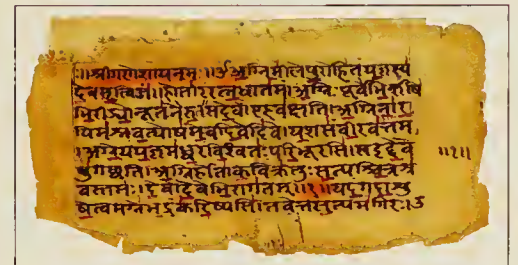 ॥श्रीगणेशायनमः ॥ॐ अग्निमीळेपुरोहितंयज्ञस्य
देवमृत्विजं॥होतारंरत्नधातमं॥अग्निः पूर्वेभिर्ऋषि
भिरीड्योनूतनैरुत॥सदेवाँएहवक्षति॥अग्निनार
यिमश्नवत्पोषमेवदिवेदिवे॥यशसंवीरवत्तमं
॥अग्नेयंयज्ञमध्वरंविश्वतः परिभूरसि॥सइद्देवे
षुगच्छति॥अग्निर्होताकविक्रतुः सत्यश्चित्रश्र
वस्तमः॥देवोदेवेभिरागमत्॥१॥यदंगदाशु
षेत्वमग्नेभद्रंकरिष्यसि॥तवेत्तत्सत्यमंगिरः॥उ
॥१॥